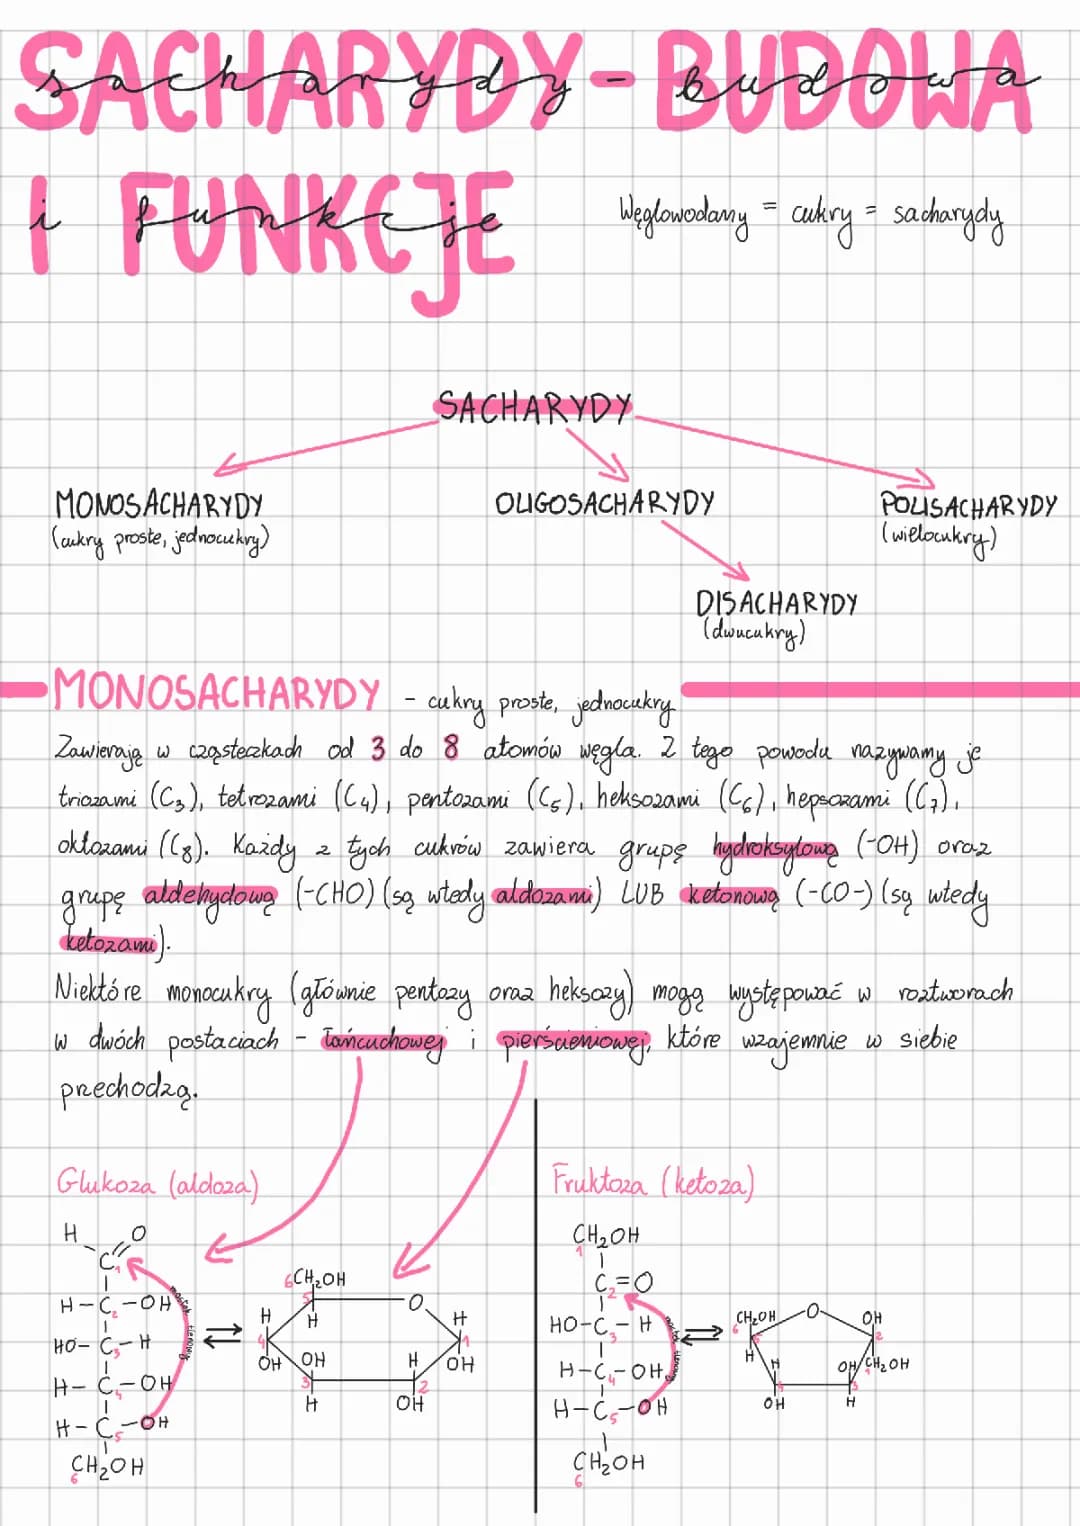 SACHARYDY - BUDOWA
sacharydy - budowa
I FUNKCJE
i funkcje
Węglowodany = cukry = sacharydy
SACHARYDY
MONOSACHARYDY
(cukry proste, jednocukry)
OLIGOSACHARYDY
POLISACHARYDY
(wielocukry)
DISACHARYDY
(dwucukry)
MONOSACHARYDY - cukry proste, jednocukry
Zawierają w cząsteczkach od 3 do 8 atomów węgla. Z tego powodu nazywamy je
triozami (C3), tetrozami (C4), pentozami (C5), heksozami (C6), hepsozami (C7),
oktozami (C8). Każdy z tych cukrów zawiera grupę hydroksylową (-OH) oraz
grupę aldehydową (-CHO) (są wtedy aldozami) LUB ketonową (-CO-) (są wtedy
ketozami).
Niektóre monocukry (głównie pentozy oraz heksozy) mogą występować w roztworach
w dwóch postaciach - łańcuchowej i pierścieniowej, które wzajemnie w siebie
przechodzą.
Glukoza (aldoza)
H O
C1
H-C2-OH
HO-C3-H
H-C4-OH
H-C5-OH
CH2OH
6
mostek tlenowy
⇌
6CH2OH
5 O
H H H
4 1
OH OH H OH
3 2
H OH
Fruktoza (ketoza)
CH2OH
1
C2=O
HO-C3-H
H-C4-OH
H-C5-OH
CH2OH
6
mostek tlenowy
⇌
CH2OH O OH
6 5 2
H H OH CH2OH
1
4 3
OH H